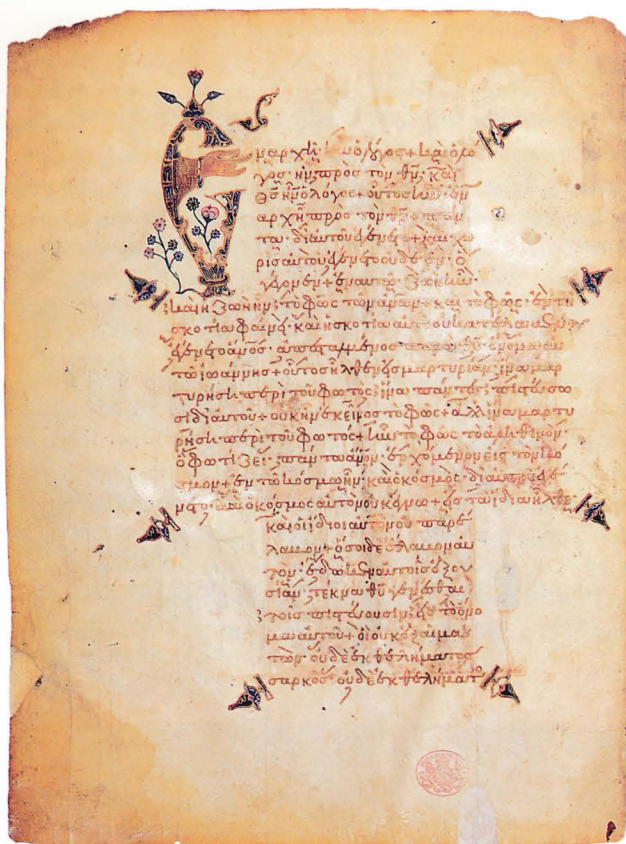 Ἐν ἀρχῆ ἦν ὁ λόγος + καὶ ὁ λό
γος ἦν πρὸς τὸν θ̅ν̅· καὶ
θ̅ς̅ ἦν ὁ λόγος + οὗτος ἦν ἐν
ἀρχῆ πρὸς τὸν θ̅ν̅ + πάν
τα· δι αὐτοῦ ἐγένετο + καὶ χω
ρὶς αὐτοῦ ἐγένετο οὐδὲ ἕν· ὃ
γέγονεν + ἐν αὐτῶ ζωὴ ἦν
καὶ ἡ ζωὴ ἦν· τὸ φῶς τῶν α̅ν̅ω̅ν̅ + καὶ τὸ φῶς· ἐν τῆ
σκοτία φαίνει· καὶ ἡ σκοτία αὐτὸ οὐ κατέλαβεν
ἐγένετο α̅ν̅ο̅ς̅· ἀπεσταλμένος παρὰ θ̅υ̅· ὄνομα αὐ
τῶ ἰωάννης + οὗτος ἦλθεν εἰς μαρτυρίαν· ἵνα μαρ
τυρήση περὶ τοῦ φωτός· ἵνα πάντες πιστεύσω
σι δι αὐτοῦ + οὐκ ἦν ἐκεῖνος τὸ φῶς + ἀλλ ἵνα μαρτυ
ρήση περὶ τοῦ φωτός + ἦν τὸ φῶς τὸ ἀληθινόν·
ὃ φωτίζει· πάντα α̅ν̅ο̅ν̅· ἐρχόμενον εἰς τὸν κό
σμον + ἐν τῶ κόσμω ἦν· καὶ ὁ κόσμος· δι αὐτοῦ ἐγέ
νετο· καὶ ὁ κόσμος αὐτὸν οὐκ ἔγνω + εἰς τὰ ἴδια ἦλθε
καὶ οἱ ἴδιοι αὐτὸν οὐ παρέ
λαβον + ὅσοι δὲ ἔλαβον αὐ
τόν· ἔδωκεν αὐτοῖς ἐξου
σίαν· τέκνα θ̅υ̅ γενέσθαι
τοῖς πιστεύουσιν· εἰς τὸ ὄνο
μα αὐτοῦ + οἳ οὐκ ἐξ αἱμά
των· οὐδὲ ἐκ θελήματος
σαρκός· οὐδὲ ἐκ θελήματο